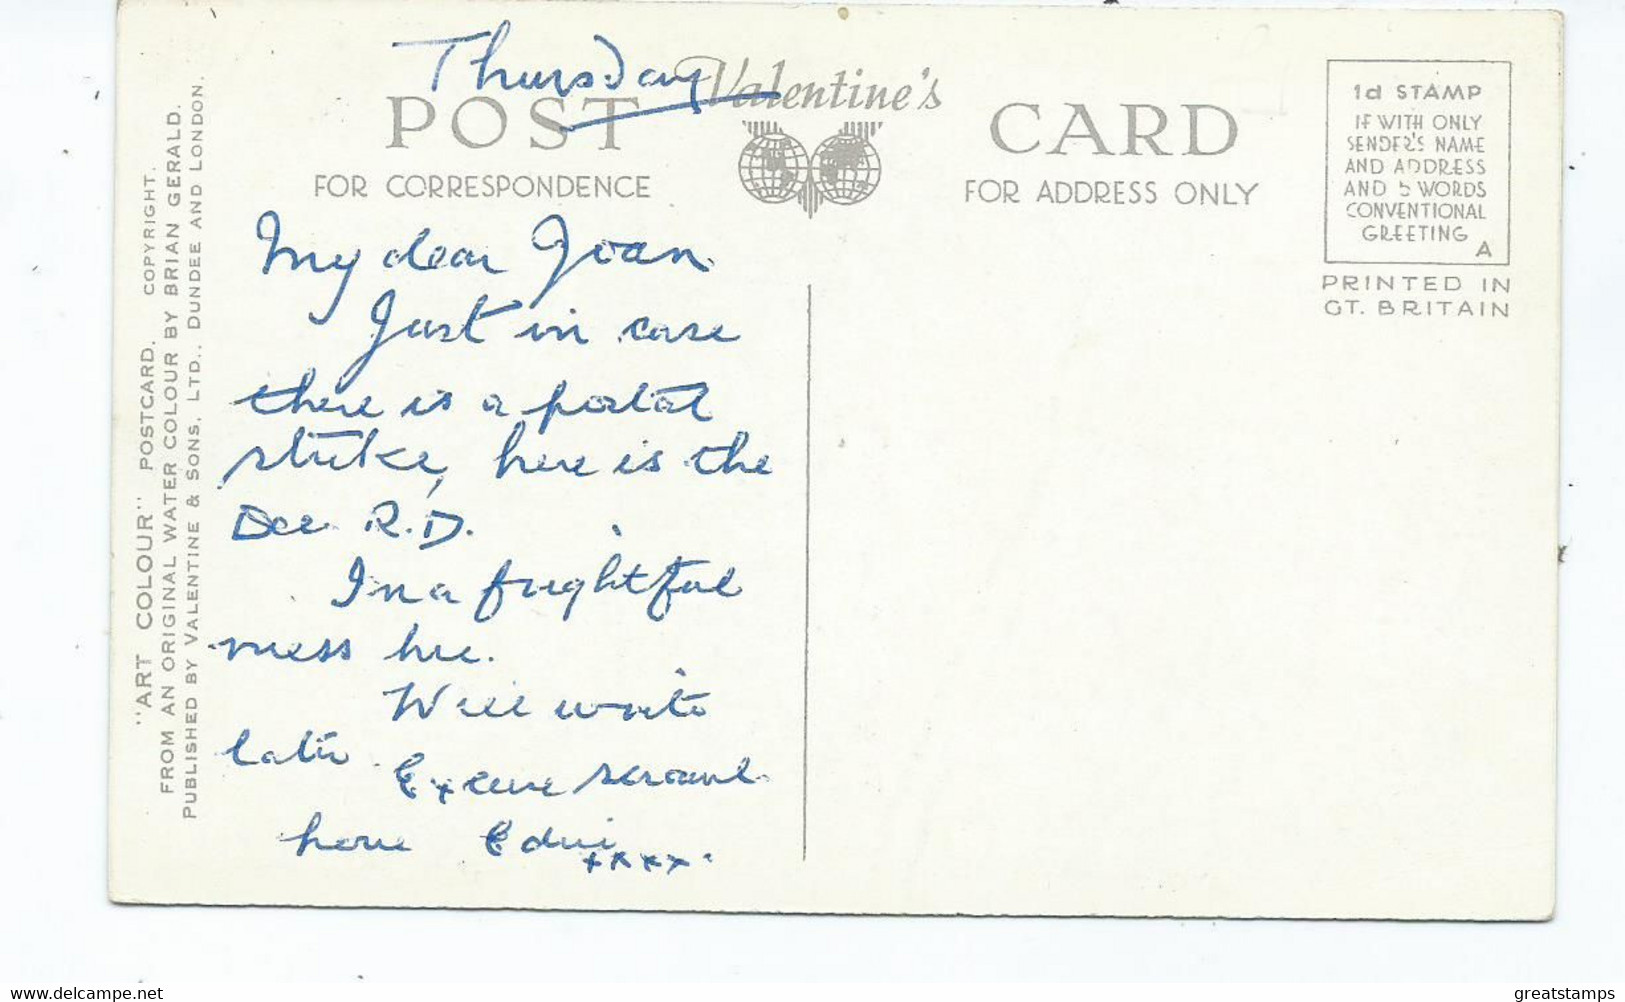 Thursday
Valentine's
POST CARD
FOR CORRESPONDENCE
FOR ADDRESS ONLY
1d STAMP
IF WITH ONLY
SENDER'S NAME
AND ADDRESS
AND 5 WORDS
CONVENTIONAL
GREETING
A
PRINTED IN
GT. BRITAIN
"ART COLOUR" POSTCARD. COPYRIGHT.
FROM AN ORIGINAL WATER COLOUR BY BRIAN GERALD.
PUBLISHED BY VALENTINE & SONS, LTD., DUNDEE AND LONDON.
My dear Joan
Just in case
there is a postal
strike, here is the
Dec R.D.
In a frightful
mess here.
Will write
later. Excuse scrawl
xxxx
www.delcampe.net
greatstamps